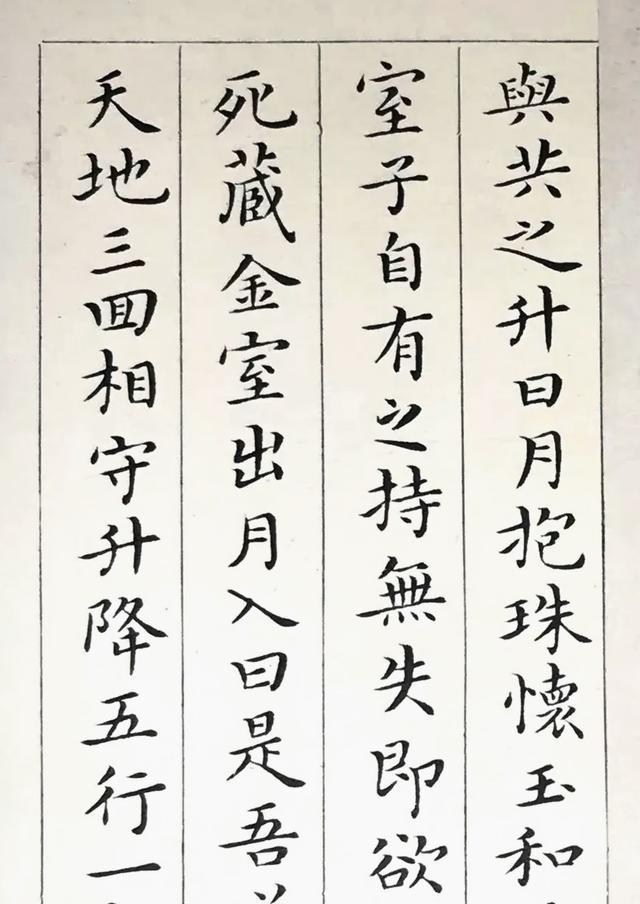 與共之升日月抱珠懷玉和
室子自有之持無失即欲
死藏金室出月入日是吾
天地三回相守升降五行一